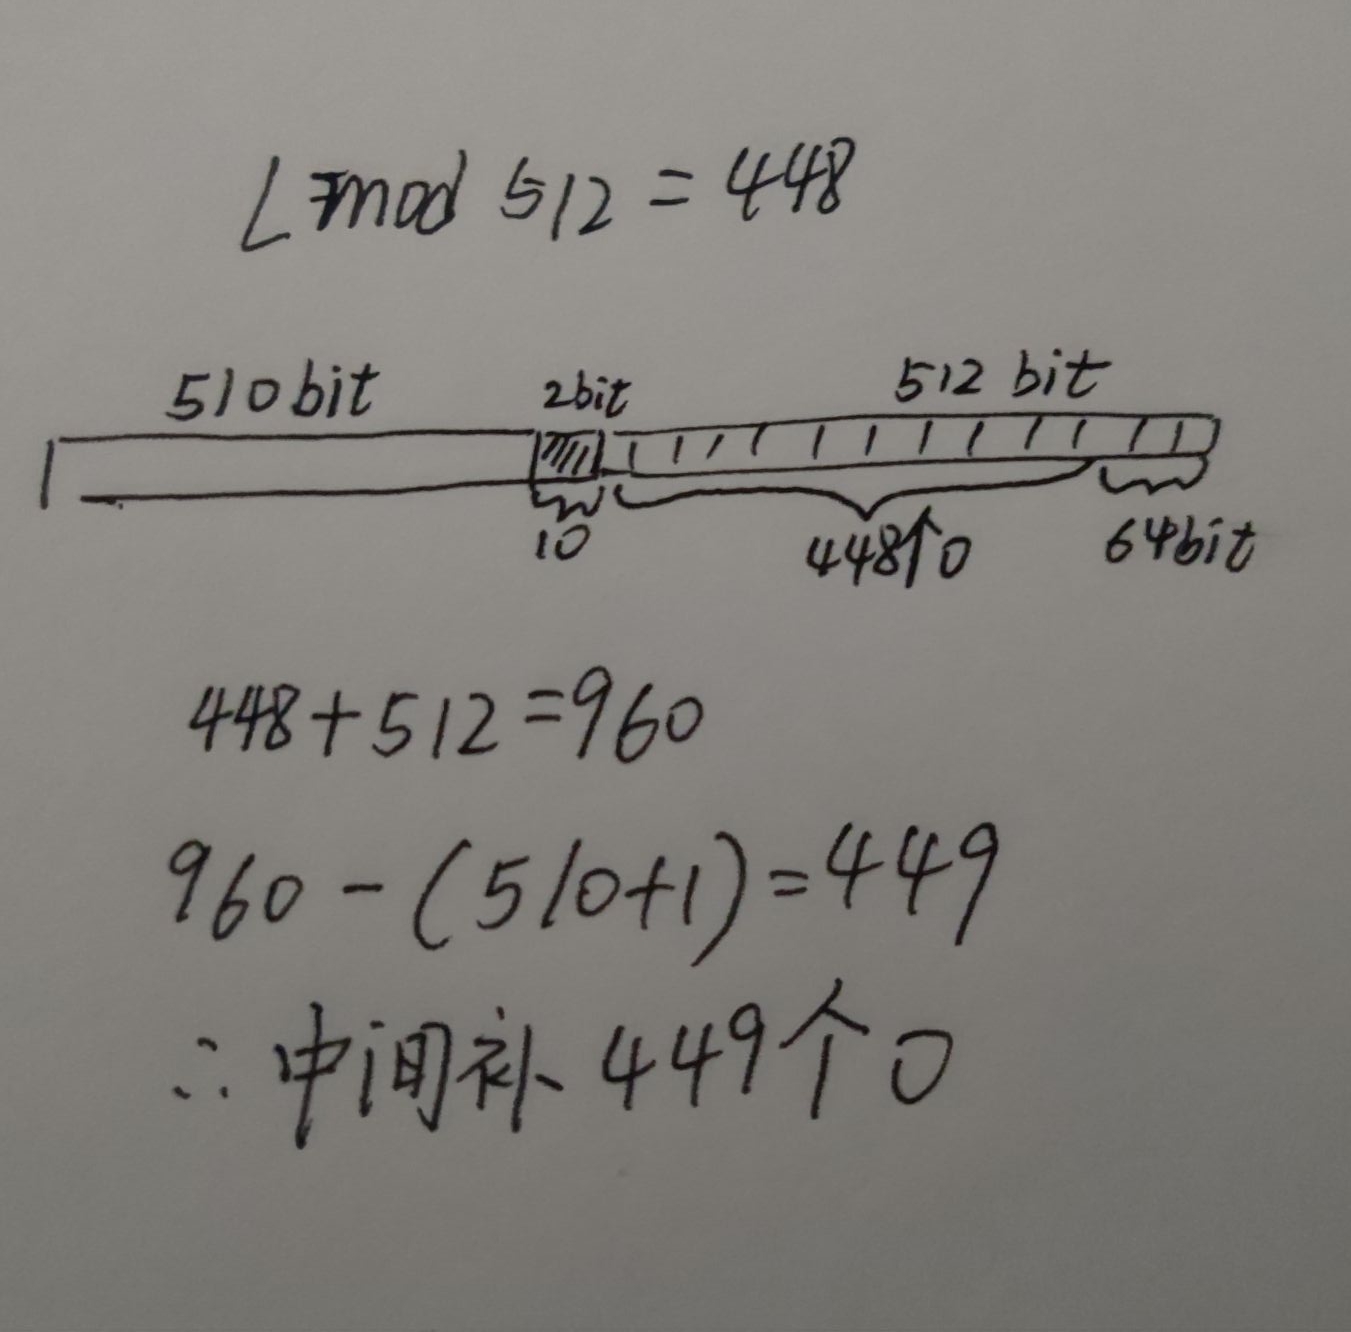 L mod 512 = 448
510bit 2bit 512 bit
10 448个0 64bit
448+512=960
960-(510+1)=449
∴中间补449个0